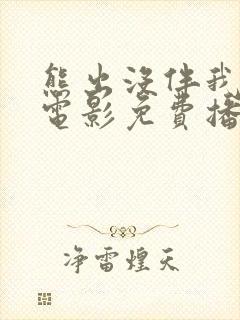 熊出没伴我
电影免費播
净雷煌天